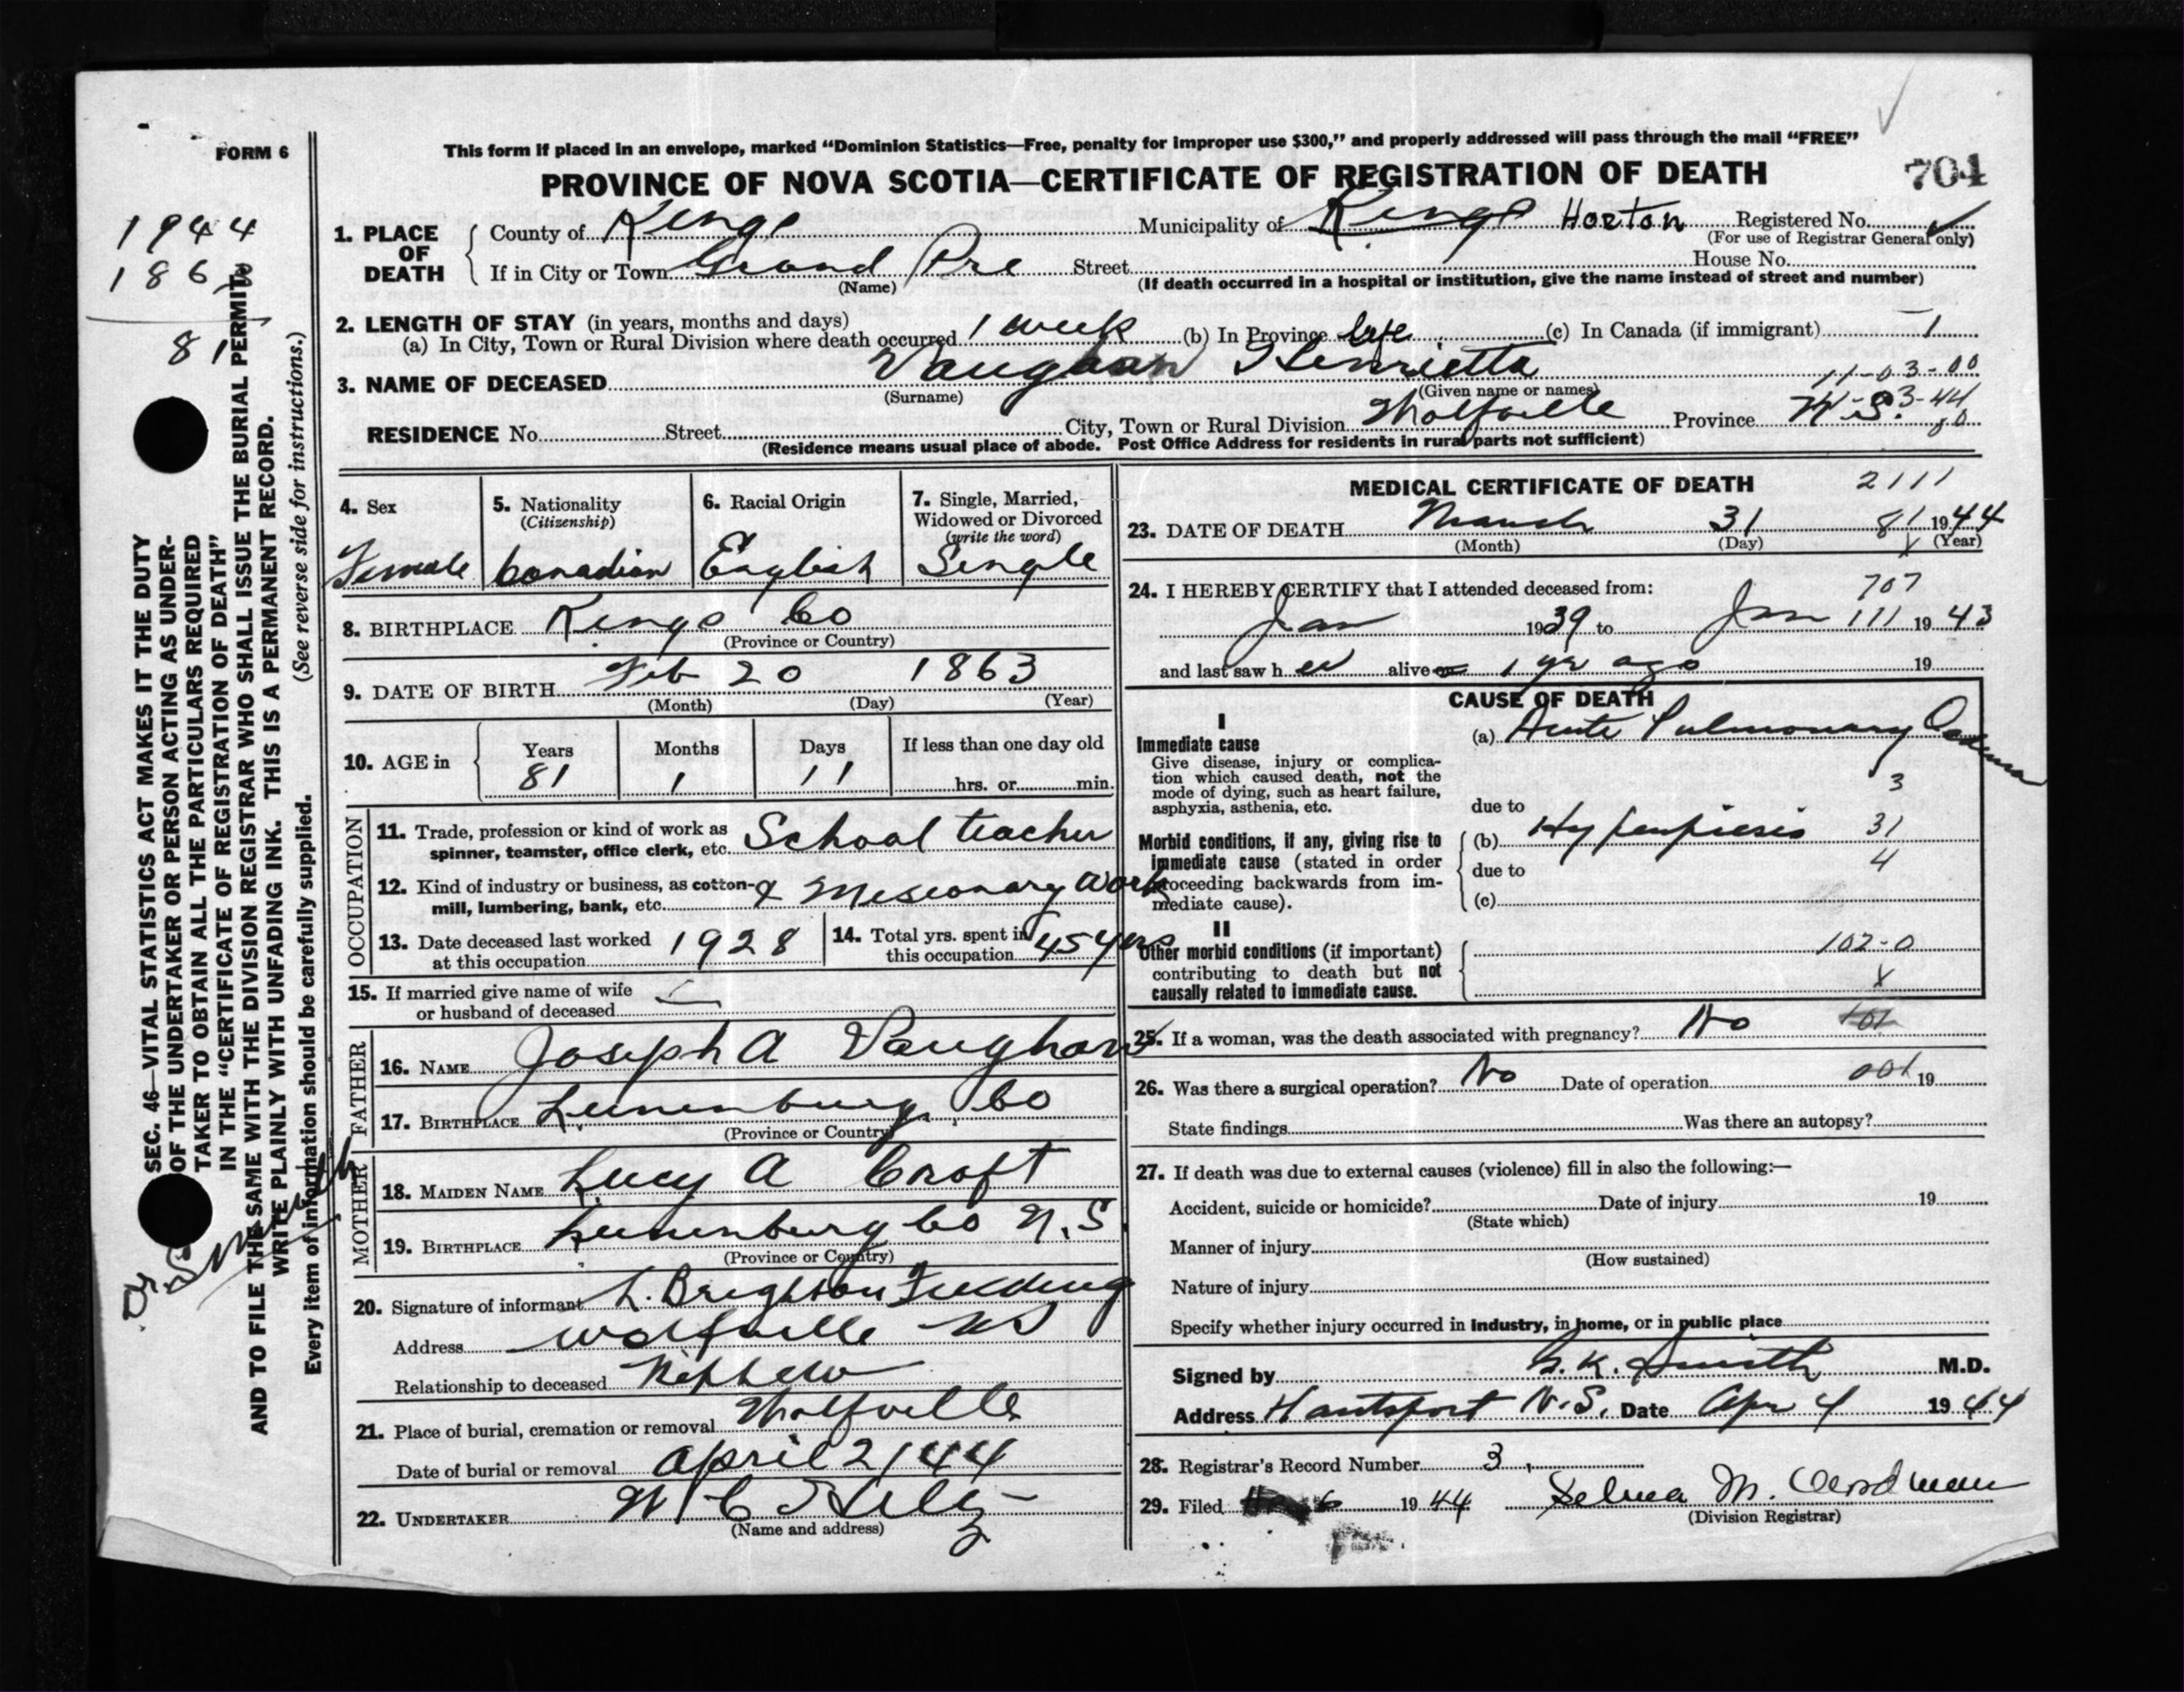 FORM 6
This form if placed in an envelope, marked “Dominion Statistics—Free, penalty for improper use $300,” and properly addressed will pass through the mail “FREE”
PROVINCE OF NOVA SCOTIA—CERTIFICATE OF REGISTRATION OF DEATH
704
1944
1863
81
1. PLACE OF DEATH
County of Kings Municipality of Kings Horton Registered No.
(For use of Registrar General only)
If in City or Town Grand Pre Street House No.
(Name) (If death occurred in a hospital or institution, give the name instead of street and number)
2. LENGTH OF STAY (in years, months and days)
(a) In City, Town or Rural Division where death occurred 1 week (b) In Province life (c) In Canada (if immigrant)
3. NAME OF DECEASED Vaughan Henrietta 11-03-00
(Surname) (Given name or names)
RESIDENCE No. Street City, Town or Rural Division Wolfville Province N.S. 3-44
80
(Residence means usual place of abode. Post Office Address for residents in rural parts not sufficient)
4. Sex
Female
5. Nationality
(Citizenship)
Canadian
6. Racial Origin
English
7. Single, Married,
Widowed or Divorced
(write the word)
Single
8. BIRTHPLACE Kings Co
(Province or Country)
9. DATE OF BIRTH Feb 20 1863
(Month) (Day) (Year)
10. AGE in
Years Months Days If less than one day old
81 1 11 hrs. or min.
OCCUPATION
11. Trade, profession or kind of work as School teacher
spinner, teamster, office clerk, etc.
12. Kind of industry or business, as cotton- & Missionary Work
mill, lumbering, bank, etc.
13. Date deceased last worked 1928
at this occupation
14. Total yrs. spent in 45 yrs
this occupation
15. If married give name of wife
or husband of deceased
FATHER
16. NAME Joseph A Vaughan
17. BIRTHPLACE Lunenburg Co
(Province or Country)
MOTHER
18. MAIDEN NAME Lucy A Croft
19. BIRTHPLACE Lunenburg Co N.S
(Province or Country)
20. Signature of informant L. Brighton Fielding
Address Wolfville NS
Relationship to deceased Nephew
21. Place of burial, cremation or removal Wolfville
Date of burial or removal April 2/44
22. UNDERTAKER
(Name and address)
MEDICAL CERTIFICATE OF DEATH 2111
23. DATE OF DEATH March 31 81 1944
(Month) (Day) (Year)
24. I HEREBY CERTIFY that I attended deceased from: 707
Jan 1939 to Jan 111 1943
and last saw h er alive on 1 yr ago 19
CAUSE OF DEATH
I
Immediate cause
Give disease, injury or complica-
tion which caused death, not the
mode of dying, such as heart failure,
asphyxia, asthenia, etc.
(a) Acute Pulmonary Oedema
3
due to
Morbid conditions, if any, giving rise to
immediate cause (stated in order
proceeding backwards from im-
mediate cause).
(b) Hyperpiesis 31
due to 4
(c)
II
Other morbid conditions (if important)
contributing to death but not
causally related to immediate cause.
102-0
X
25. If a woman, was the death associated with pregnancy? No 101
26. Was there a surgical operation? No Date of operation 001 19
State findings Was there an autopsy?
27. If death was due to external causes (violence) fill in also the following:—
Accident, suicide or homicide? Date of injury 19
(State which)
Manner of injury
(How sustained)
Nature of injury
Specify whether injury occurred in industry, in home, or in public place
Signed by Smith M.D.
Address Hantsport N.S. Date Apr 4 1944
28. Registrar's Record Number 3.
29. Filed 6 1944 Selma M.
(Division Registrar)
SEC. 46—VITAL STATISTICS ACT MAKES IT THE DUTY
OF THE UNDERTAKER OR PERSON ACTING AS UNDER-
TAKER TO OBTAIN ALL THE PARTICULARS REQUIRED
IN THE “CERTIFICATE OF REGISTRATION OF DEATH”
AND TO FILE THE SAME WITH THE DIVISION REGISTRAR WHO SHALL ISSUE THE BURIAL PERMIT.
WRITE PLAINLY WITH UNFADING INK. THIS IS A PERMANENT RECORD.
Every item of information should be carefully supplied. (See reverse side for instructions.)